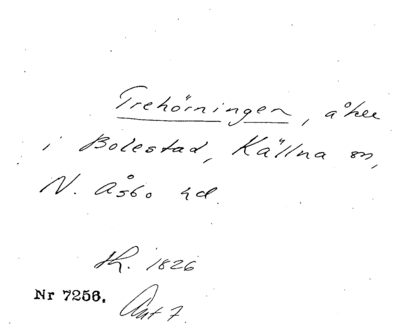 Trehörningen, åker
i Bolestad, Källna sn,
N. Åsbo hd.
Sk. 1826
Nr 7256. Ant 7